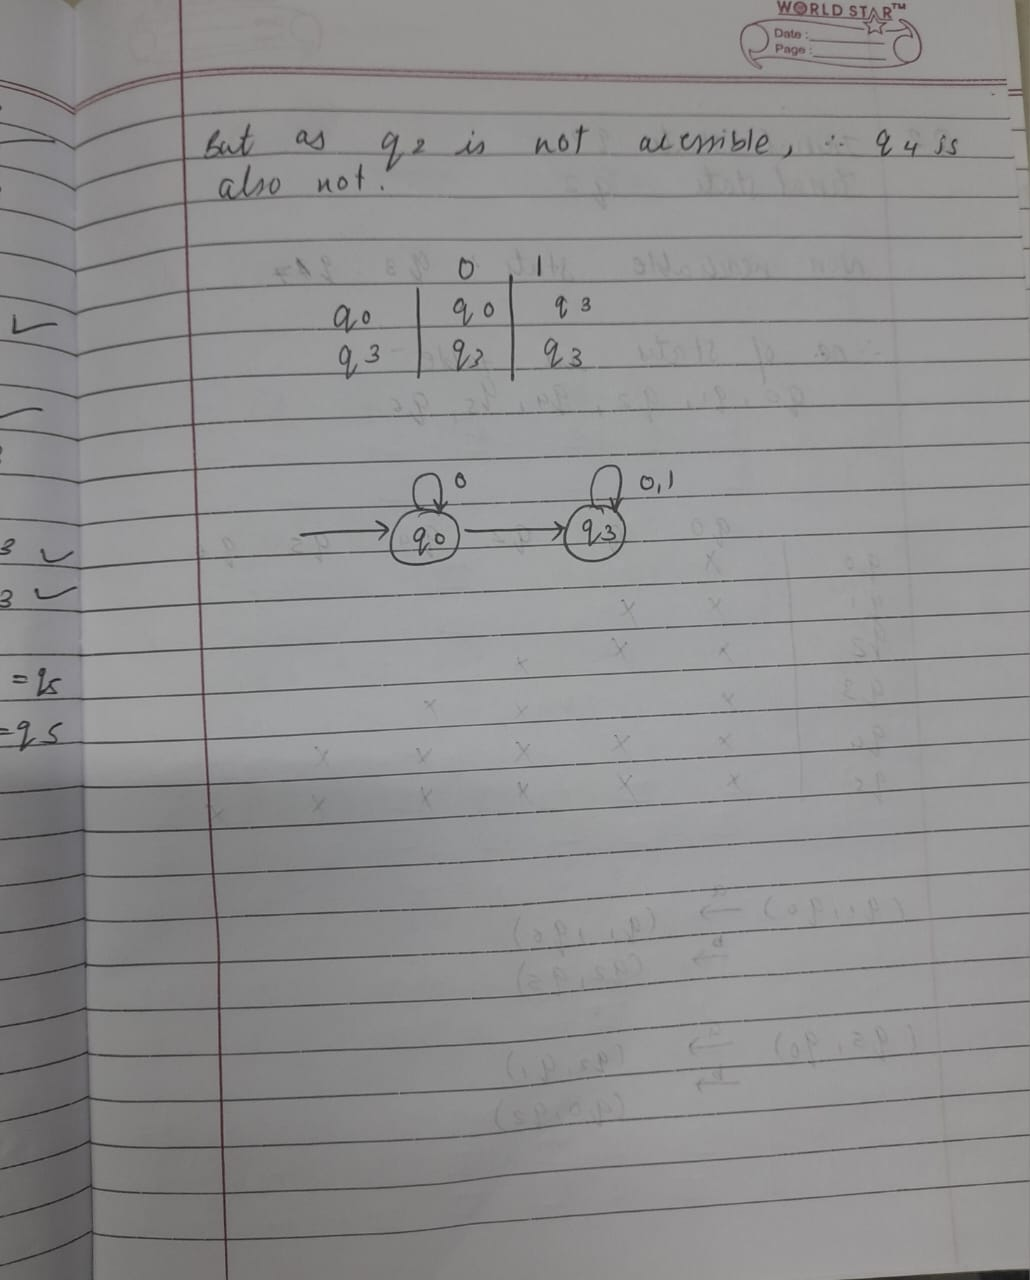 WORLD STAR™
Date :
Page :
But as q2 is not acessible, ∴ q4 is
also not.
0 1
q0 q0 q3
q3 q3 q3
0 0,1
q0 q3
3 ✓
3 ✓
= q5
= q5